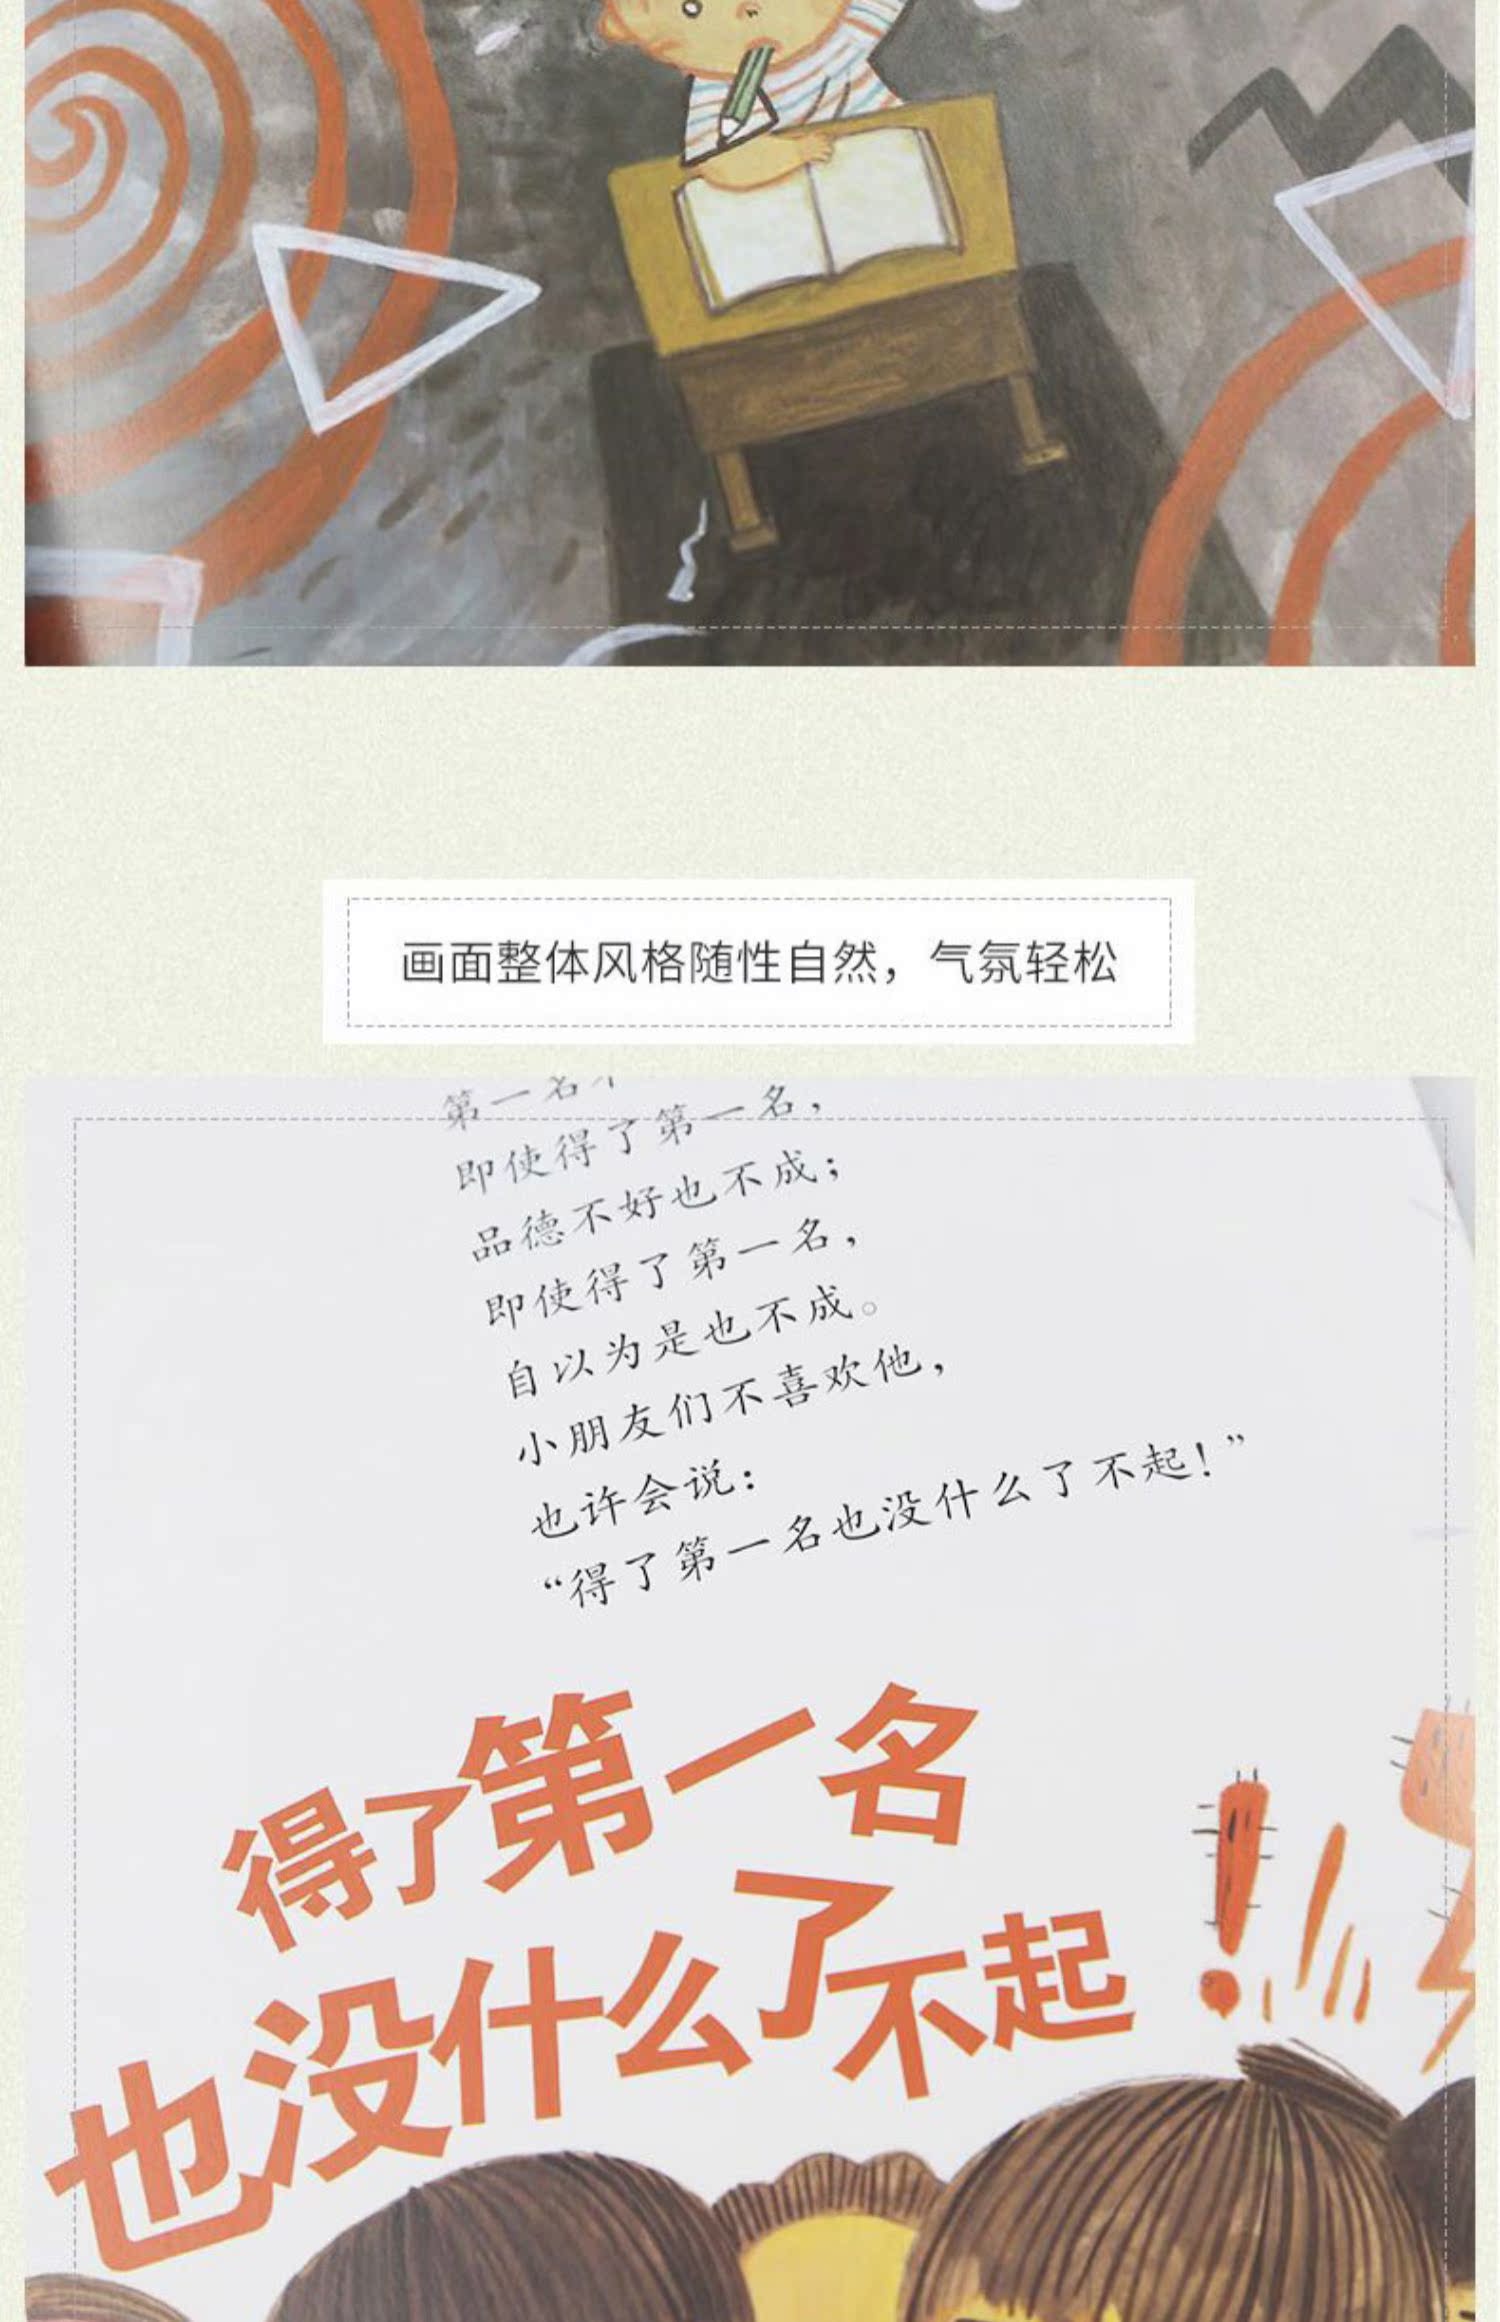 画面整体风格随性自然，气氛轻松
第一名
即使得了第一名，
品德不好也不成；
即使得了第一名，
自以为是也不成。
小朋友们不喜欢他，
也许会说：
“得了第一名也没什么了不起！”
得了第一名
也没什么了不起